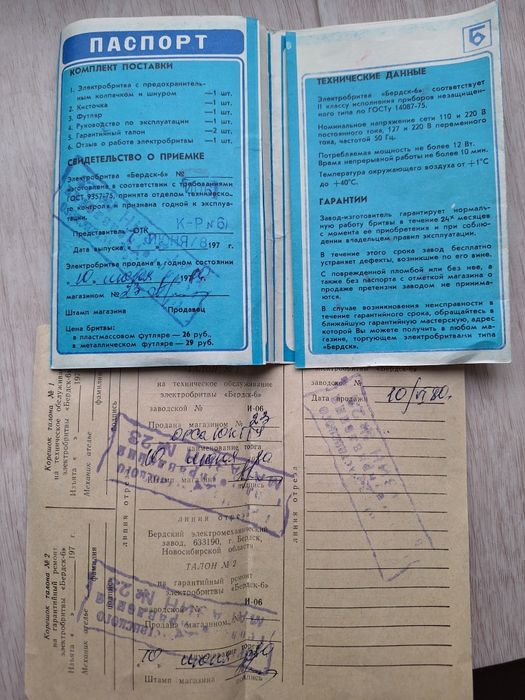 ПАСПОРТ
КОМПЛЕКТ ПОСТАВКИ
1. Электробритва с предохранитель-
ным колпачком и шнуром —1 шт.
2. Кисточка —1 шт.
3. Футляр —1 шт.
4. Руководство по эксплуатации —1 шт.
5. Гарантийный талон —2 шт.
6. Отзыв о работе электробритвы —1 шт.
СВИДЕТЕЛЬСТВО О ПРИЕМКЕ
Электробритва «Бердск-6» №
изготовлена в соответствии с требованиями
ГОСТ 9357-75, принята отделом техническо-
го контроля и признана годной к эксплуа-
тации.
Представитель ОТК К-Р№6
Дата выпуска ИЮНЯ 197 г.
Электробритва продана в годном состоянии
10 1980
магазином № 23
Штамп магазина Продавец
Цена бритвы:
в пластмассовом футляре — 26 руб.
в металлическом футляре — 29 руб.
Б
ТЕХНИЧЕСКИЕ ДАННЫЕ
Электробритва «Бердск-6» соответствует
II классу исполнения приборов незащищен-
ного типа по ГОСТу 14087-75.
Номинальное напряжение сети 110 и 220 В
постоянного тока, 127 и 220 В переменного
тока, частотой 50 Гц.
Потребляемая мощность не более 12 Вт.
Время непрерывной работы не более 10 мин.
Температура окружающего воздуха от +1°С
до +40°С.
ГАРАНТИИ
Завод-изготовитель гарантирует нормаль-
ную работу бритвы в течение 24х месяцев
с момента ее приобретения и при соблю-
дении владельцем правил эксплуатации.
В течение этого срока завод бесплатно
устраняет дефекты, возникшие по его вине.
С поврежденной пломбой или без нее, а
также без паспорта с отметкой магазина о
продаже претензии заводом не принима-
ются.
В случае возникновения неисправности в
течение гарантийного срока, обращайтесь в
ближайшую гарантийную мастерскую, адрес
которой Вы можете получить в любом ма-
газине, торгующем электробритвами типа
«Бердск».
Корешок талона № 1
на техническое обслуживание
электробритвы «Бердск-6»
Изъята « » 197 г.
Механик ателье
фамилия
подпись
линия отреза
на техническое обслуживание
электробритвы «Бердск-6»
заводской № И-06
Продана магазином № 23
наименование торга
10 июня 80
Штамп магазина подпись
МАГАЗИН № 23
линия отреза
Бердский электромеханический
завод, 633190, г. Бердск,
Новосибирской области
ТАЛОН № 2
на гарантийный ремонт
электробритвы «Бердск-6»
заводской № И-06
Продана магазином
10 июня 80
Штамп магазина подпись
МАГАЗИН № 23
Корешок талона № 2
на гарантийный ремонт
электробритвы «Бердск-6»
Изъята « » 197 г.
Механик ателье
фамилия
подпись
линия отреза
линия отреза
заводской №
Дата продажи 10/VI 80.